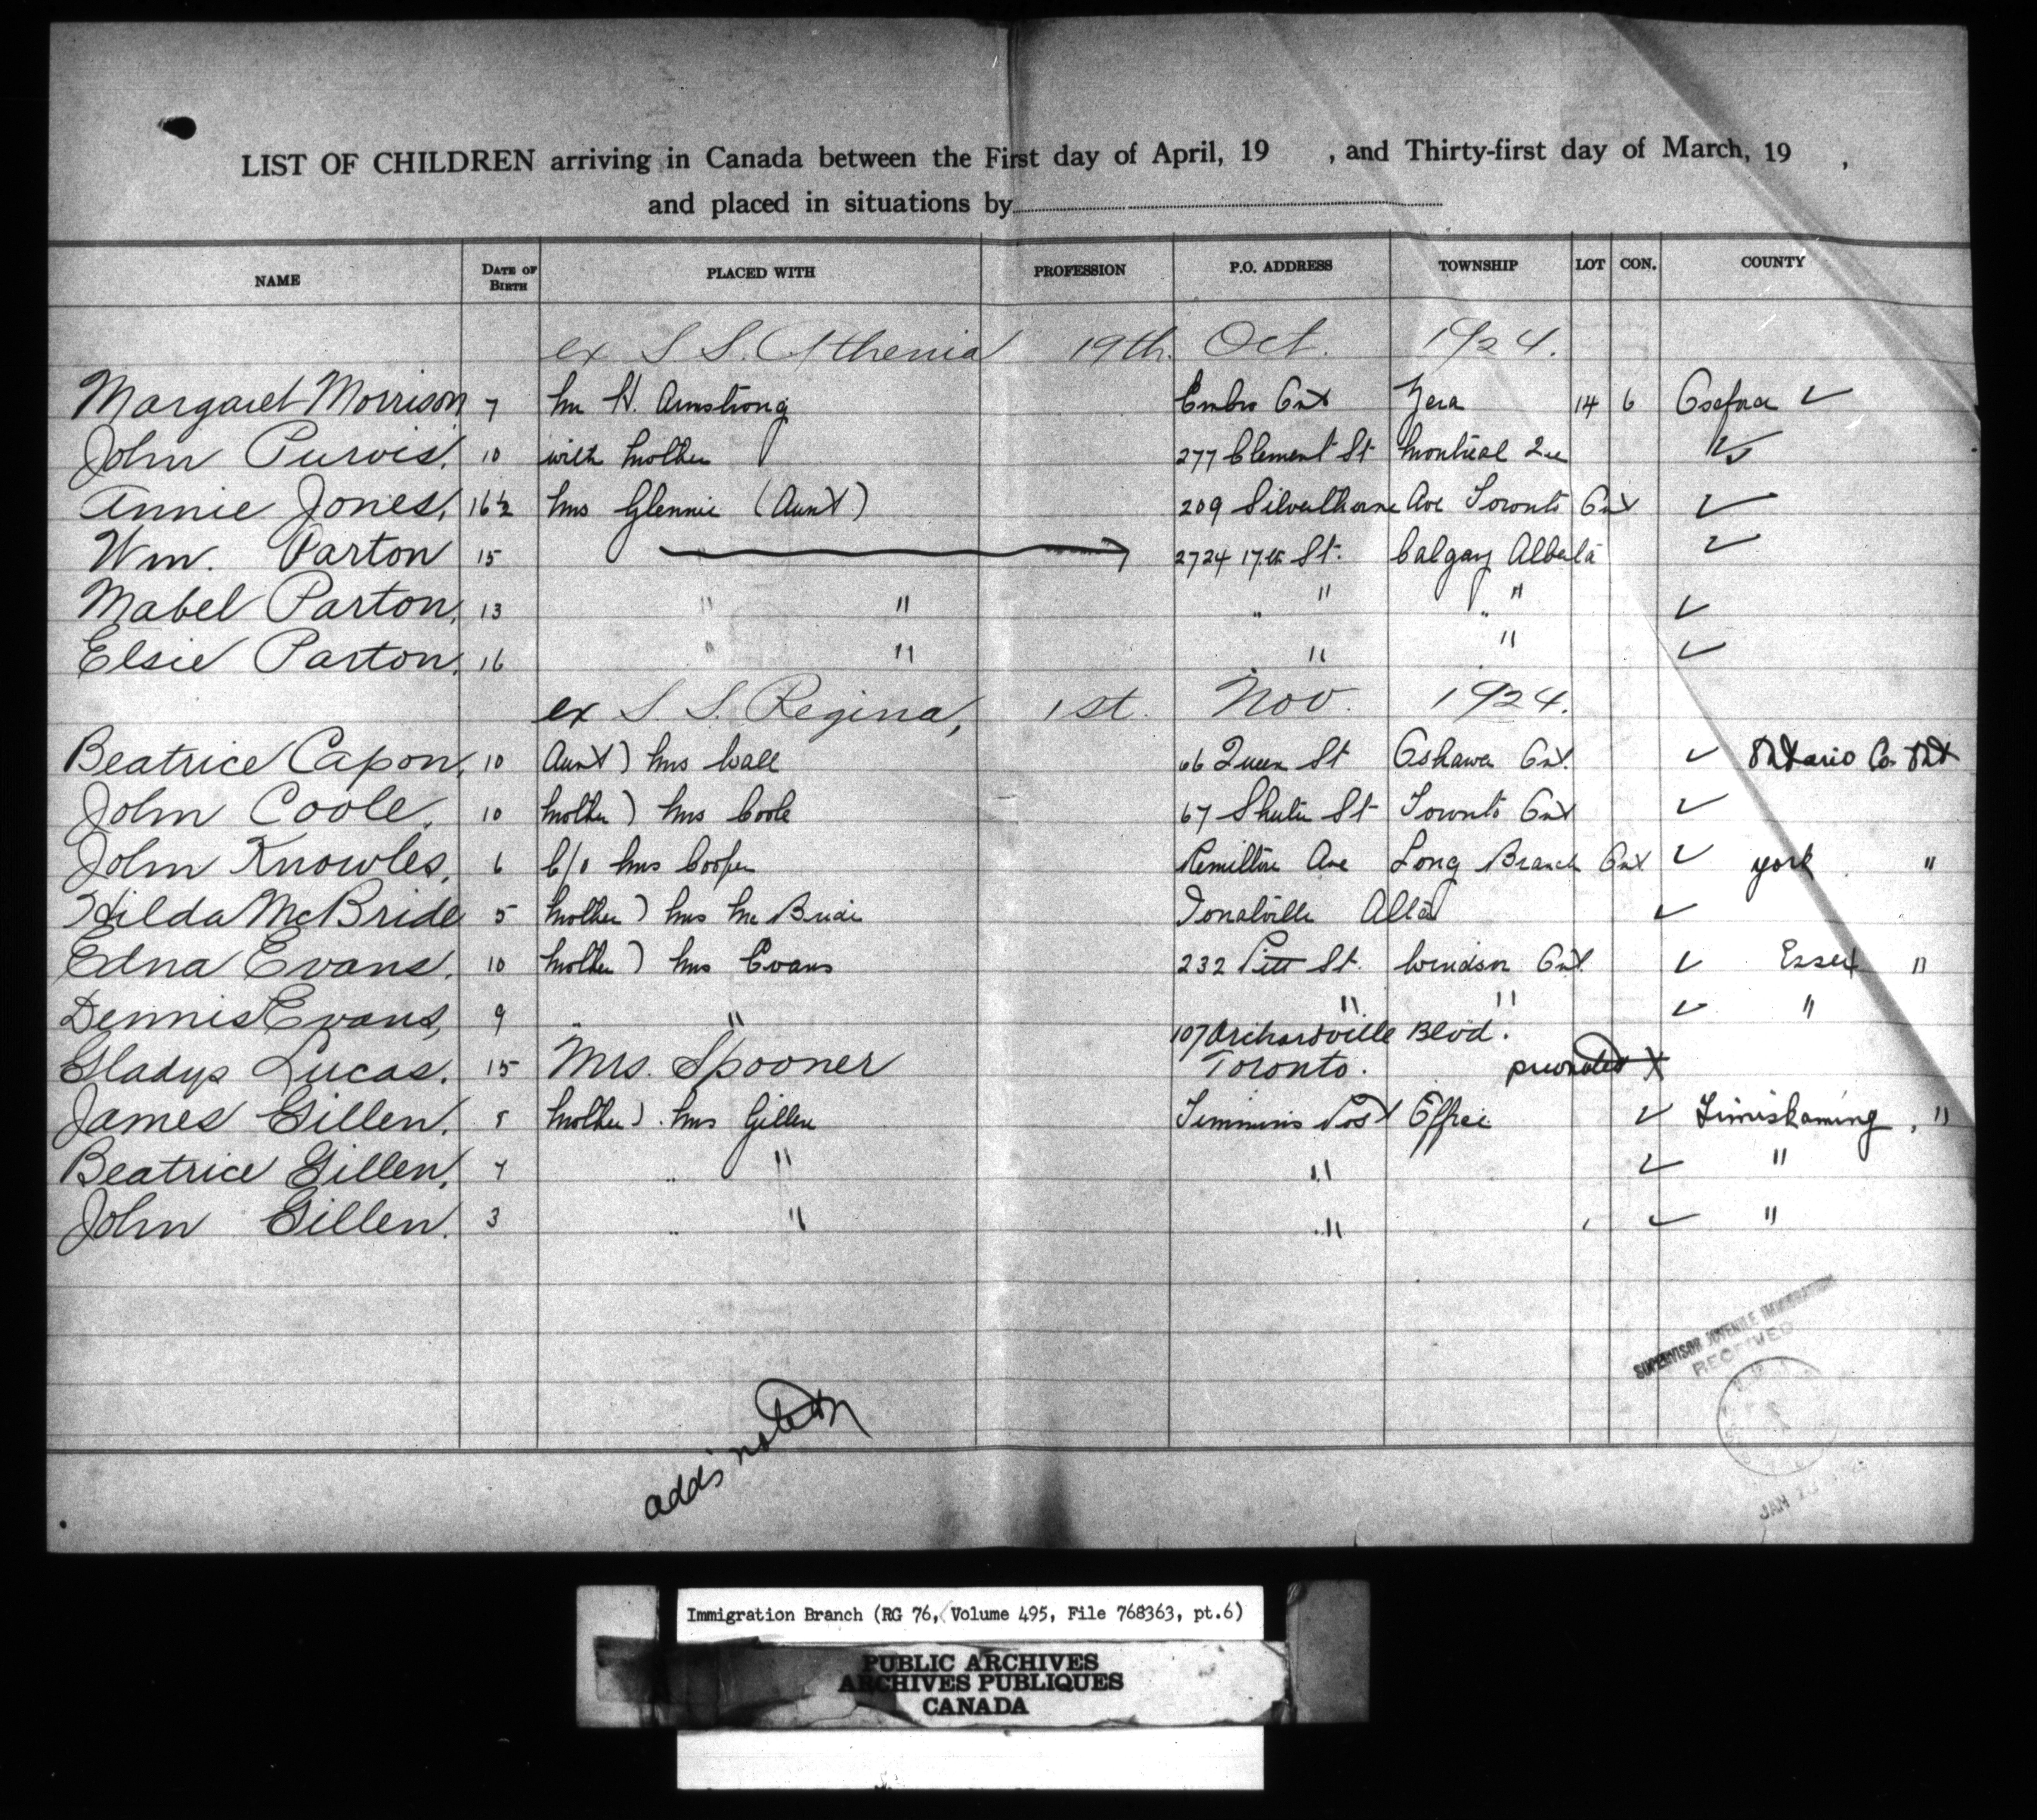 LIST OF CHILDREN arriving in Canada between the First day of April, 19 , and Thirty-first day of March, 19 ,
and placed in situations by
NAME DATE OF BIRTH PLACED WITH PROFESSION P.O. ADDRESS TOWNSHIP LOT CON. COUNTY
ex S S. Athenia 19th. Oct. 1924.
Margaret Morrison 7 Mr H. Armstrong Embro Ont Zora 14 6 ✓
John Purvis. 10 with Mother 277 Clement St Montreal Que ✓
Annie Jones, 16½ Mrs Glennie (Aunt) 209 Silverthorne Ave Toronto Ont ✓
Wm. Parton 15 2724 17th St. Calgary Alberta ✓
Mabel Parton, 13 " " " " " " ✓
Elsie Parton. 16 " " " " ✓
ex S. S. Regina, 1st. Nov. 1924.
Beatrice Capon, 10 Aunt) Mrs Wall 66 Queen St Oshawa Ont. ✓ Ontario Co Ont
John Coole. 10 Mother) Mrs Coole 67 Shuter St Toronto Ont ✓
John Knowles, 6 C/o Mrs Cooper Ave Long Branch Ont ✓ york "
Hilda McBride 5 Mother) Mrs McBride Donalville Alta ✓
Edna Evans. 10 Mother) Mrs Evans 232 Pitt St. Windsor Ont. ✓ Essex "
Dennis Evans, 9 " " " " ✓ "
107 Orchardville Blvd.
Gladys Lucas. 15 Mrs. Spooner Toronto. X
James Gillen. 8 Mother). Mrs Gillen Timmins Post Office ✓ Timiskaming, "
Beatrice Gillen, 7 " " " ✓ "
John Gillen. 3 " " " ✓ "
SUPERVISOR JUVENILE IMMIGRATION
RECEIVED
JAN
adds noted
Immigration Branch (RG 76, Volume 495, File 768363, pt.6)
PUBLIC ARCHIVES
ARCHIVES PUBLIQUES
CANADA